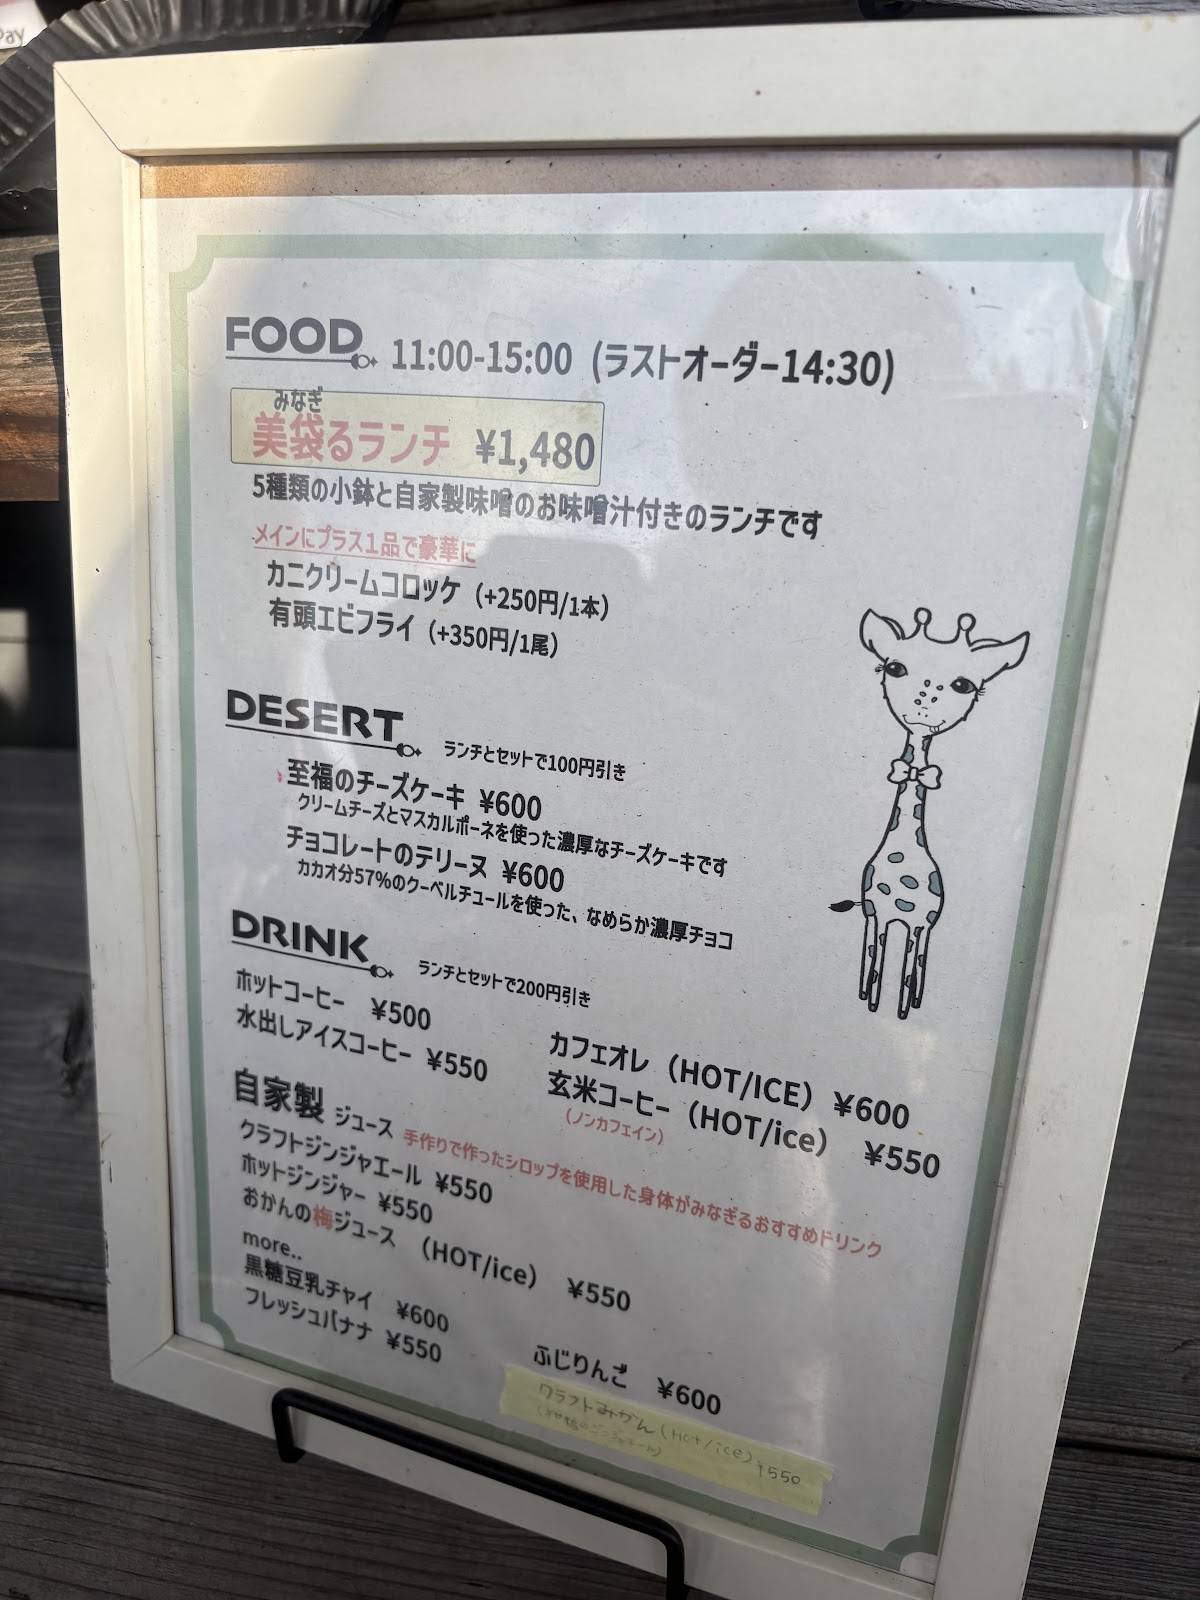 Pay
FOOD 11:00-15:00 (ラストオーダー14:30)
みなぎ
美袋るランチ ¥1,480
5種類の小鉢と自家製味噌のお味噌汁付きのランチです
メインにプラス1品で豪華に
カニクリームコロッケ (+250円/1本)
有頭エビフライ (+350円/1尾)
DESERT ランチとセットで100円引き
至福のチーズケーキ ¥600
クリームチーズとマスカルポーネを使った濃厚なチーズケーキです
チョコレートのテリーヌ ¥600
カカオ分57%のクーベルチュールを使った、なめらか濃厚チョコ
DRINK ランチとセットで200円引き
ホットコーヒー ¥500
水出しアイスコーヒー ¥550
カフェオレ (HOT/ICE) ¥600
玄米コーヒー (HOT/ice) ¥550
(ノンカフェイン)
自家製 ジュース 手作りで作ったシロップを使用した身体がみなぎるおすすめドリンク
クラフトジンジャエール ¥550
ホットジンジャー ¥550
おかんの梅ジュース (HOT/ice) ¥550
more..
黒糖豆乳チャイ ¥600
フレッシュバナナ ¥550
ふじりんご ¥600
クラフトみかん (Hot/ice) ¥550